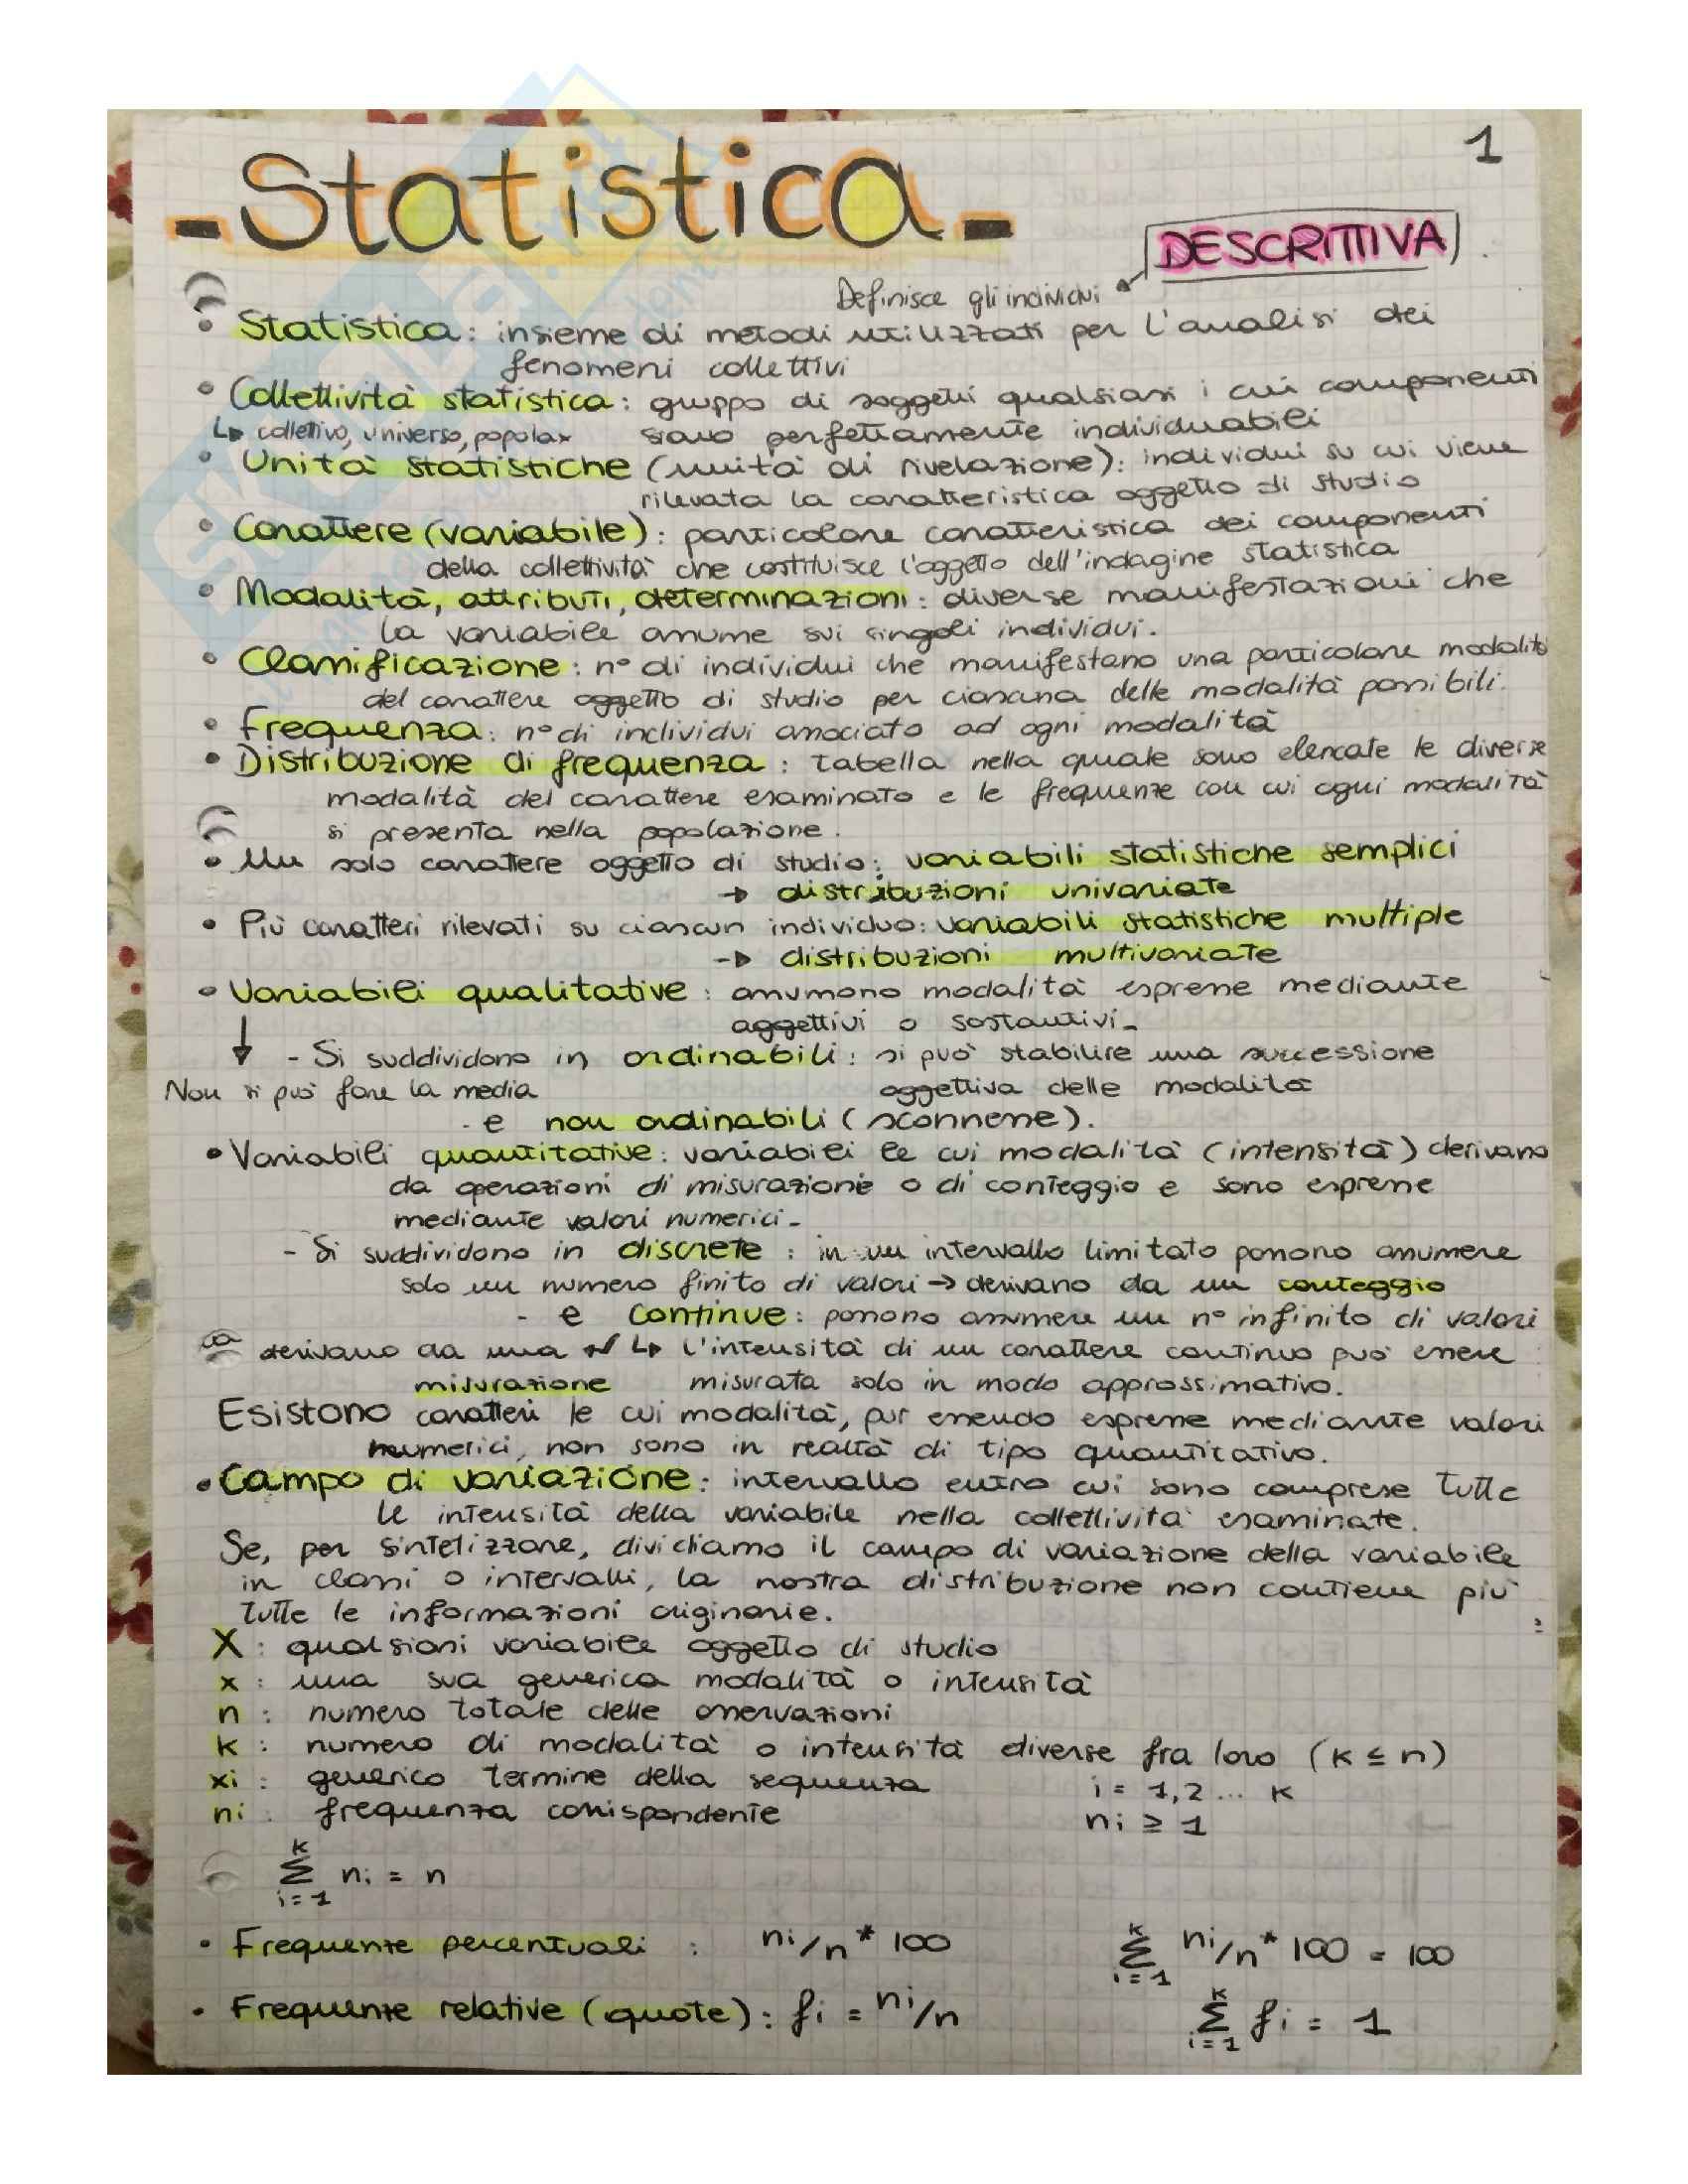 1
-Statistica-
DESCRITTIVA
Definisce gli individui
• Statistica: insieme di metodi utilizzati per l'analisi dei
fenomeni collettivi
• Collettività statistica: gruppo di soggetti qualsiasi i cui componenti
↳ collettivo, universo, popolax siano perfettamente individuabili
• Unità statistiche (unità di rivelazione): individui su cui viene
rilevata la caratteristica oggetto di studio
• Carattere (variabile): particolare caratteristica dei componenti
della collettività che costituisce l'oggetto dell'indagine statistica
• Modalità, attributi, determinazioni: diverse manifestazioni che
la variabile assume sui singoli individui.
• Classificazione: n° di individui che manifestano una particolare modalità
del carattere oggetto di studio per ciascuna delle modalità possibili.
• Frequenza: n° di individui associato ad ogni modalità
• Distribuzione di frequenza: tabella nella quale sono elencate le diverse
modalità del carattere esaminato e le frequenze con cui ogni modalità
si presenta nella popolazione.
• Un solo carattere oggetto di studio: variabili statistiche semplici
→ distribuzioni univariate
• Più caratteri rilevati su ciascun individuo: variabili statistiche multiple
→ distribuzioni multivariate
• Variabili qualitative: assumono modalità espresse mediante
aggettivi o sostantivi.
↓ - Si suddividono in ordinabili: si può stabilire una successione
Non si può fare la media oggettiva delle modalità
- e non ordinabili (sconnesse).
• Variabili quantitative: variabili le cui modalità (intensità) derivano
da operazioni di misurazione o di conteggio e sono espresse
mediante valori numerici.
- Si suddividono in discrete: in un intervallo limitato possono assumere
solo un numero finito di valori → derivano da un conteggio
- e continue: possono assumere un n° infinito di valori
derivano da una ↙ ↳ l'intensità di un carattere continuo può essere
misurazione misurata solo in modo approssimativo.
Esistono caratteri le cui modalità, pur essendo espresse mediante valori
numerici, non sono in realtà di tipo quantitativo.
• Campo di variazione: intervallo entro cui sono comprese tutte
le intensità della variabile nella collettività esaminate.
Se, per sintetizzare, dividiamo il campo di variazione della variabile
in classi o intervalli, la nostra distribuzione non contiene più
tutte le informazioni originarie.
X: qualsiasi variabile oggetto di studio
x: una sua generica modalità o intensità
n: numero totale delle osservazioni
k: numero di modalità o intensità diverse fra loro (k ≤ n)
xi: generico termine della sequenza i = 1,2... k
ni: frequenza corrispondente ni ≥ 1
k
Σ ni = n
i=1
• Frequenze percentuali: ni/n * 100 k Σ i=1 ni/n * 100 = 100
• Frequenze relative (quote): fi = ni/n k Σ i=1 fi = 1